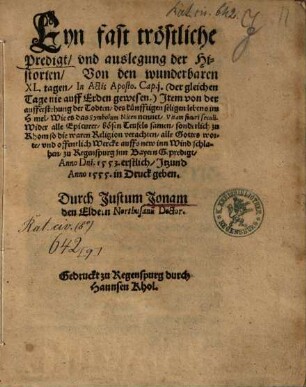 Kat. iv. 642.
Eyn fast tröstliche
Predigt/ vnd auslegung der Hi-
storien/ Von den wunderbaren
XL. tagen/ In Actis Aposto. Cap. j. (der gleichen
Tage nie auff Erden gewesen.) Item von der
aufferstehung der Todten/ des künfftigen seligen lebens im
Himel/ Wie es das Symbolum
Wider alle Epicurer/ bösen
die waren Religion verachten/ alle Gottes wor-
te/ vnd offentlich Wercke auffs new inn Wind schla-
hen/ zu Regenspurg inn Bayern Gepredigt/
Anno Dni. 1553. erstlich/ Itzund
Anno 1555. in Druck geben.
Durch Justum Jonam
den Eldern Northusanū Doctor.
642
Gedruckt zu Regenspurg durch
Hannsen Khol.